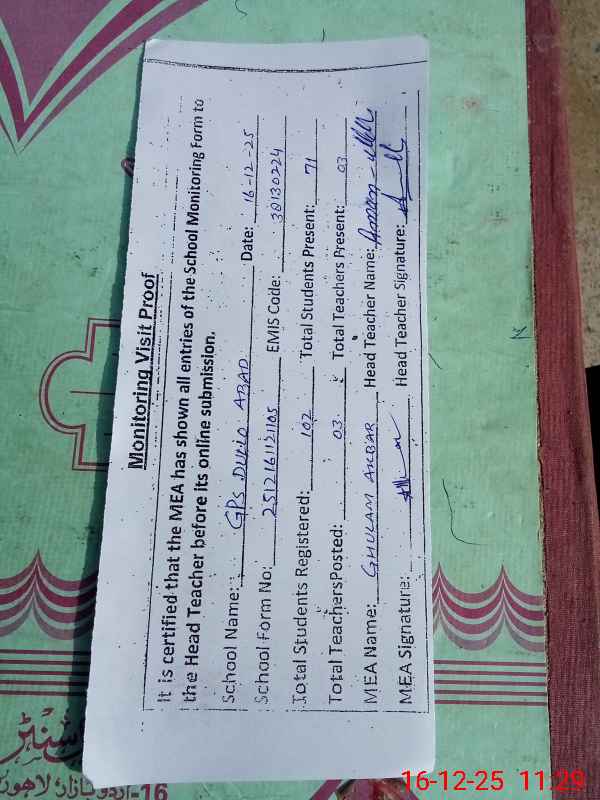 Monitoring Visit Proof
It is certified that the MEA has shown all entries of the School Monitoring Form to
the Head Teacher before its online submission.
School Name: GPS ABAD Date: 16-12-25
School Form No: 2512161121105 EMIS Code: 38130224
Total Students Registered: 102 Total Students Present: 71
Total TeachersPosted: 03 Total Teachers Present: 03
MEA Name: GHULAM AKBAR Head Teacher Name:
MEA Signature: Head Teacher Signature:
16-اردو بازار، لاہور
16-12-25 11:29